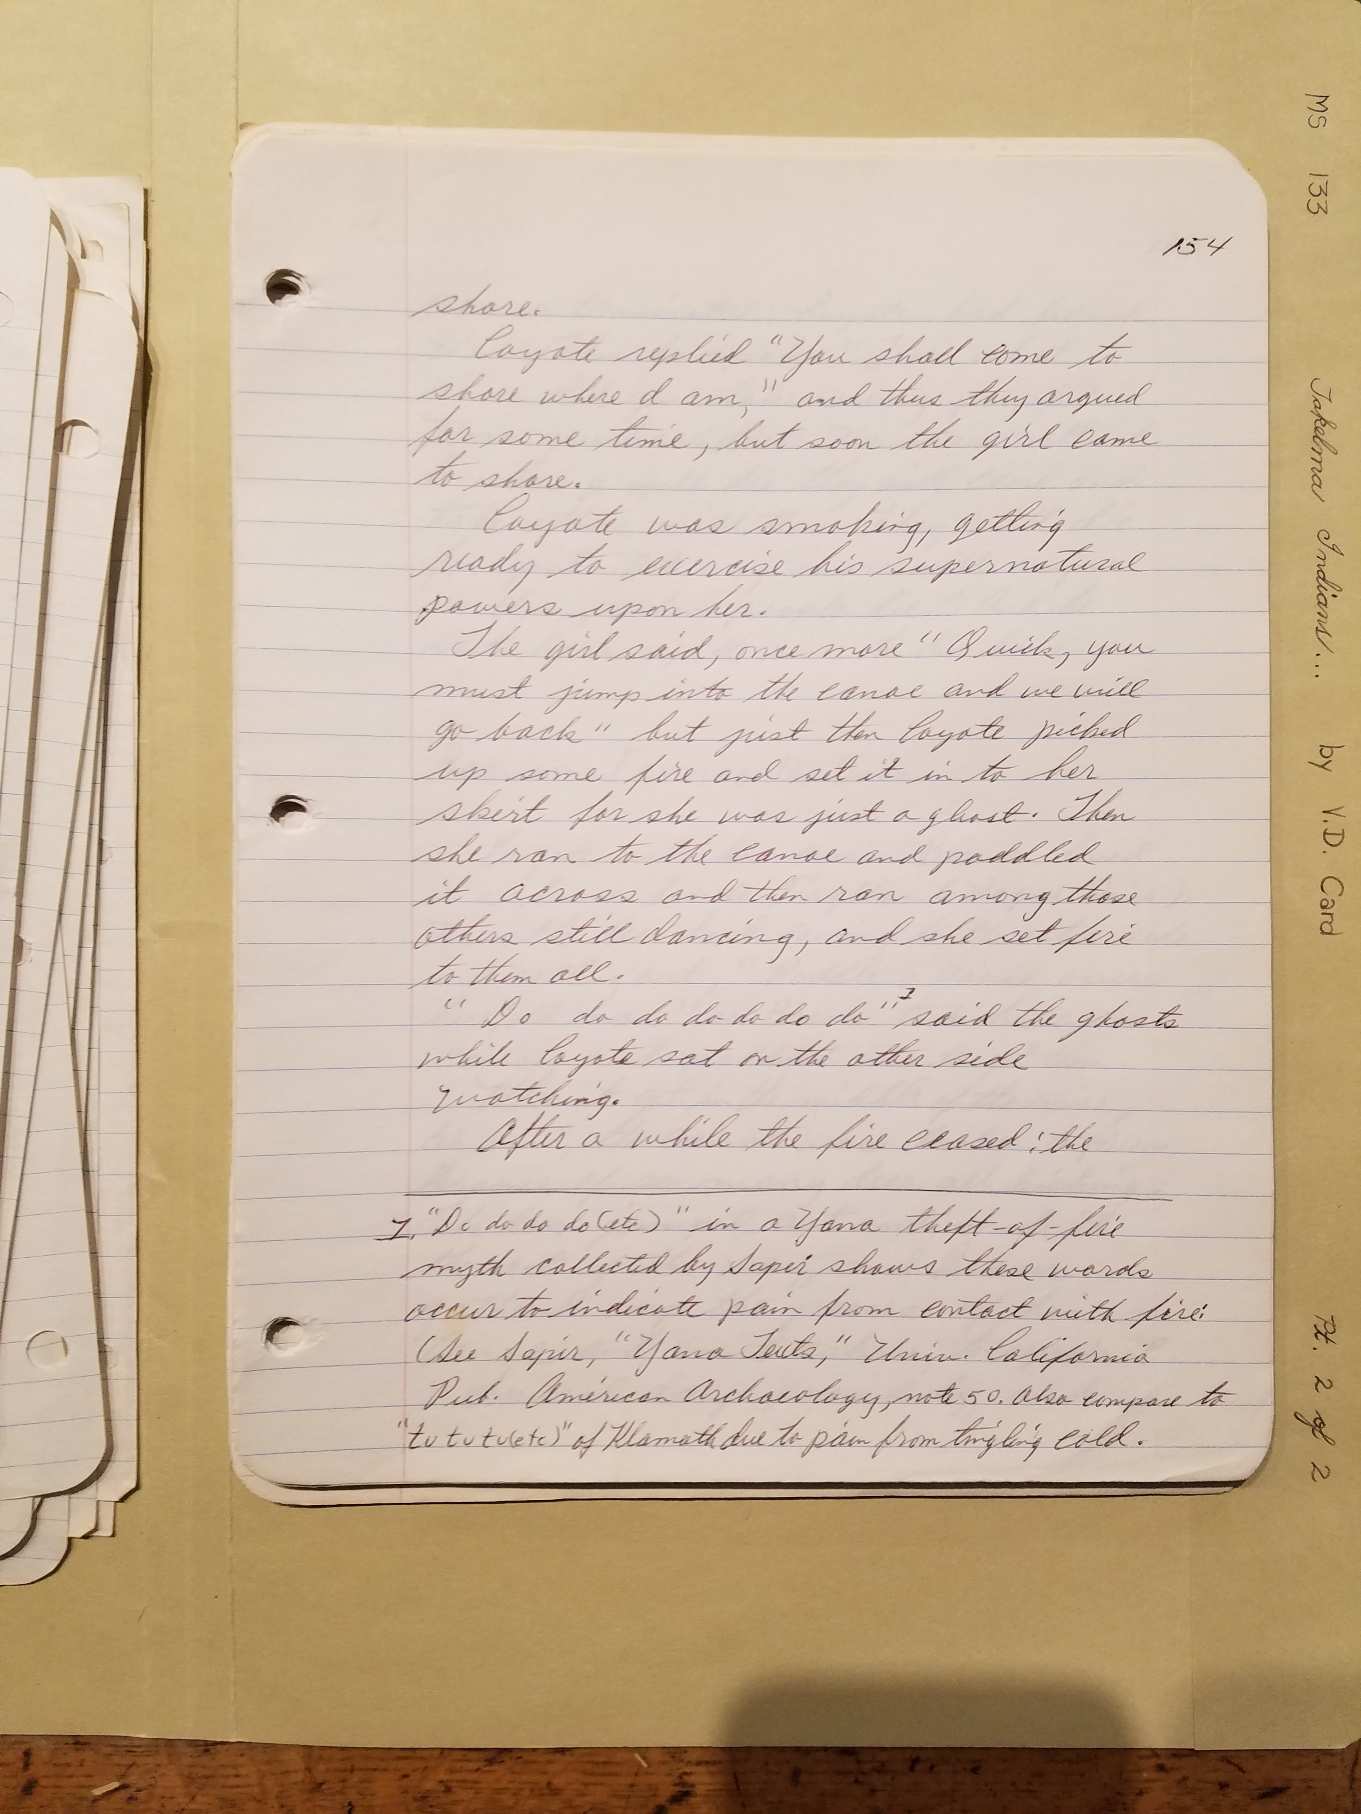 154
shore.
Coyote replied "You shall come to
shore where I am," and thus they argued
for some time, but soon the girl came
to shore.
Coyote was smoking, getting
ready to exercise his supernatural
powers upon her.
The girl said, once more "Quick, you
must jump into the canoe and we will
go back" but just then Coyote picked
up some fire and set it in to her
skirt for she was just a ghost. Then
she ran to the canoe and paddled
it across and then ran among those
others still dancing, and she set fire
to them all.
"Do do do do do do do"1 said the ghosts
while Coyote sat on the other side
watching.
After a while the fire ceased: the
1. "Do do do do (etc)" in a Yana theft-of-fire
myth collected by Sapir shows these words
occur to indicate pain from contact with fire:
(See Sapir, "Yana Texts," Univ. California
Pub. American Archaeology, note 50. also compare to
"tu tu tu (etc)" of Klamath due to pain from tingling cold.
MS 133 Takelma Indians... by V.D. Card Pt. 2 of 2